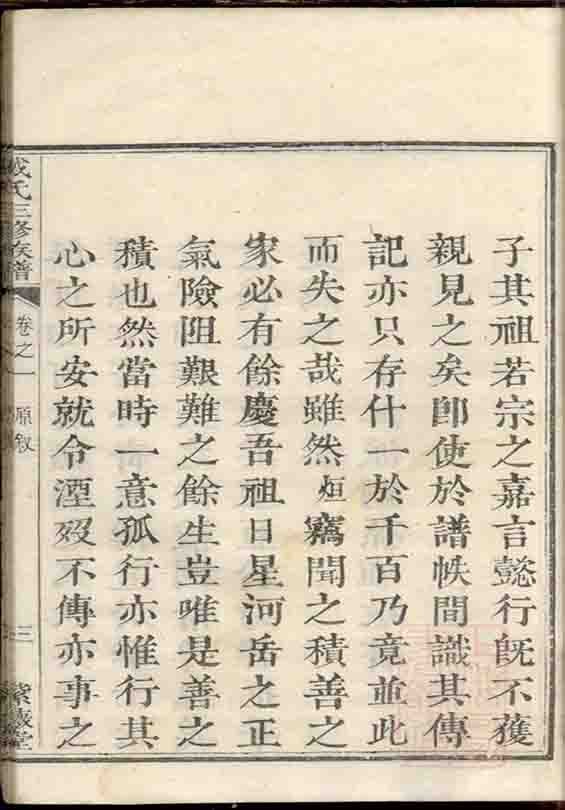 子其祖若宗之嘉言懿行旣不獲
親見之矣卽使於譜帙間識其傳
記亦只存什一於千百乃竟並此
而失之哉雖然烜竊聞之積善之
家必有餘慶吾祖日星河岳之正
氣險阻艱難之餘生豈唯是善之
積也然當時一意孤行亦惟行其
心之所安就令湮歿不傳亦事之
氏三修族譜
卷之一
原敘
三